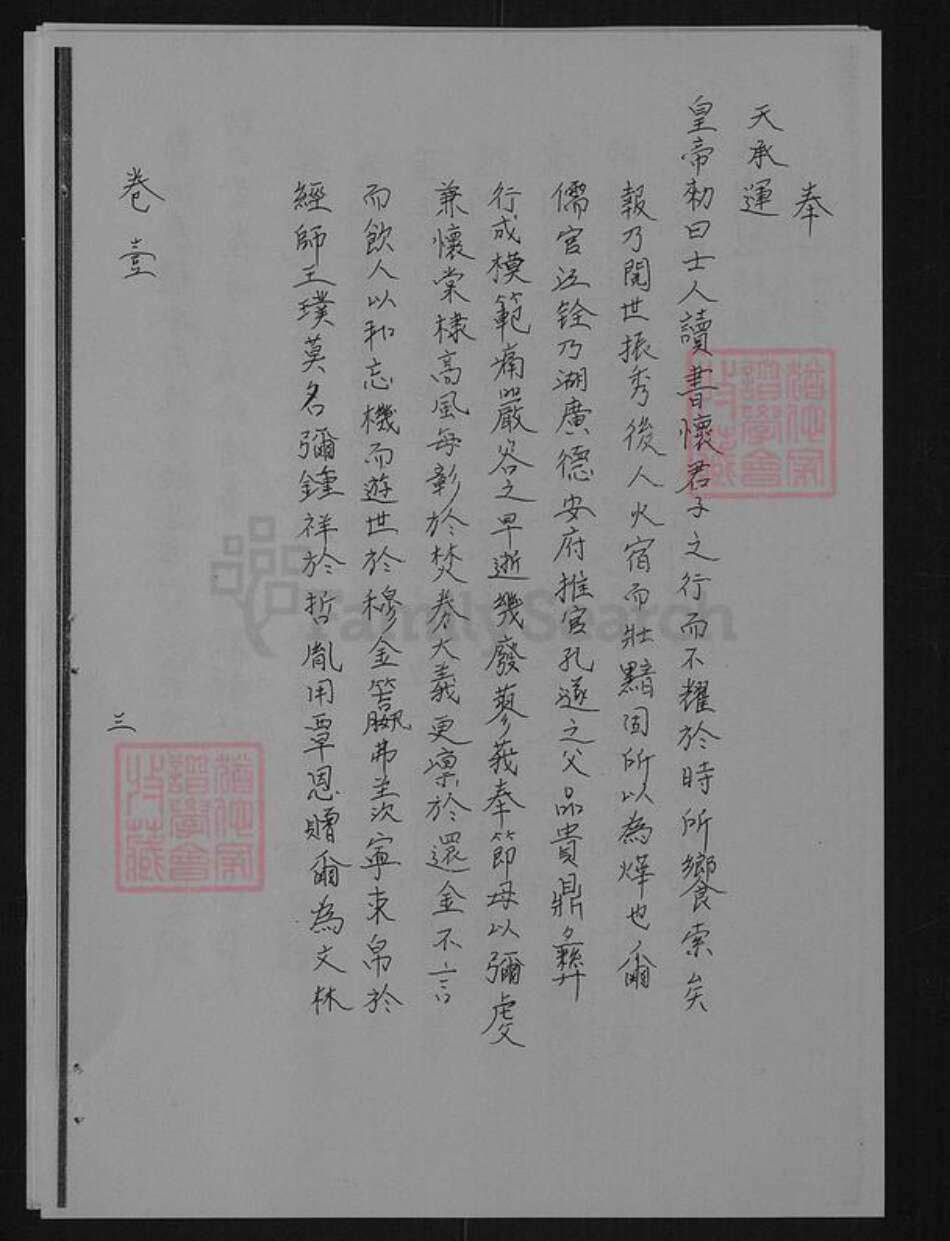 奉
天承運
皇帝勅曰士人讀書懷君子之行而不耀於時所饗索矣
報乃閱世振秀後人火宿而壯黯固所以為燁也爾
儒官江銓乃湖廣德安府推官孔遂之父品貴鼎彝
行成模範痛嚴容之早逝幾廢蓼莪奉節母以彌虔
兼懷棠棣高風每彰於焚券大義更凜於還金不言
而飲人以和忘機而遊世於穆金筶弗並次寧束帛於
經師王璞莫名彌鍾祥於哲胤用覃恩贈爾為文林
卷壹
三
FamilySearch